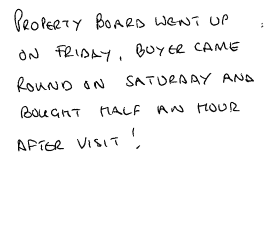 PROPERTY BOARD WENT UP
ON FRIDAY, BUYER CAME
ROUND ON SATURDAY AND
BOUGHT HALF AN HOUR
AFTER VISIT!